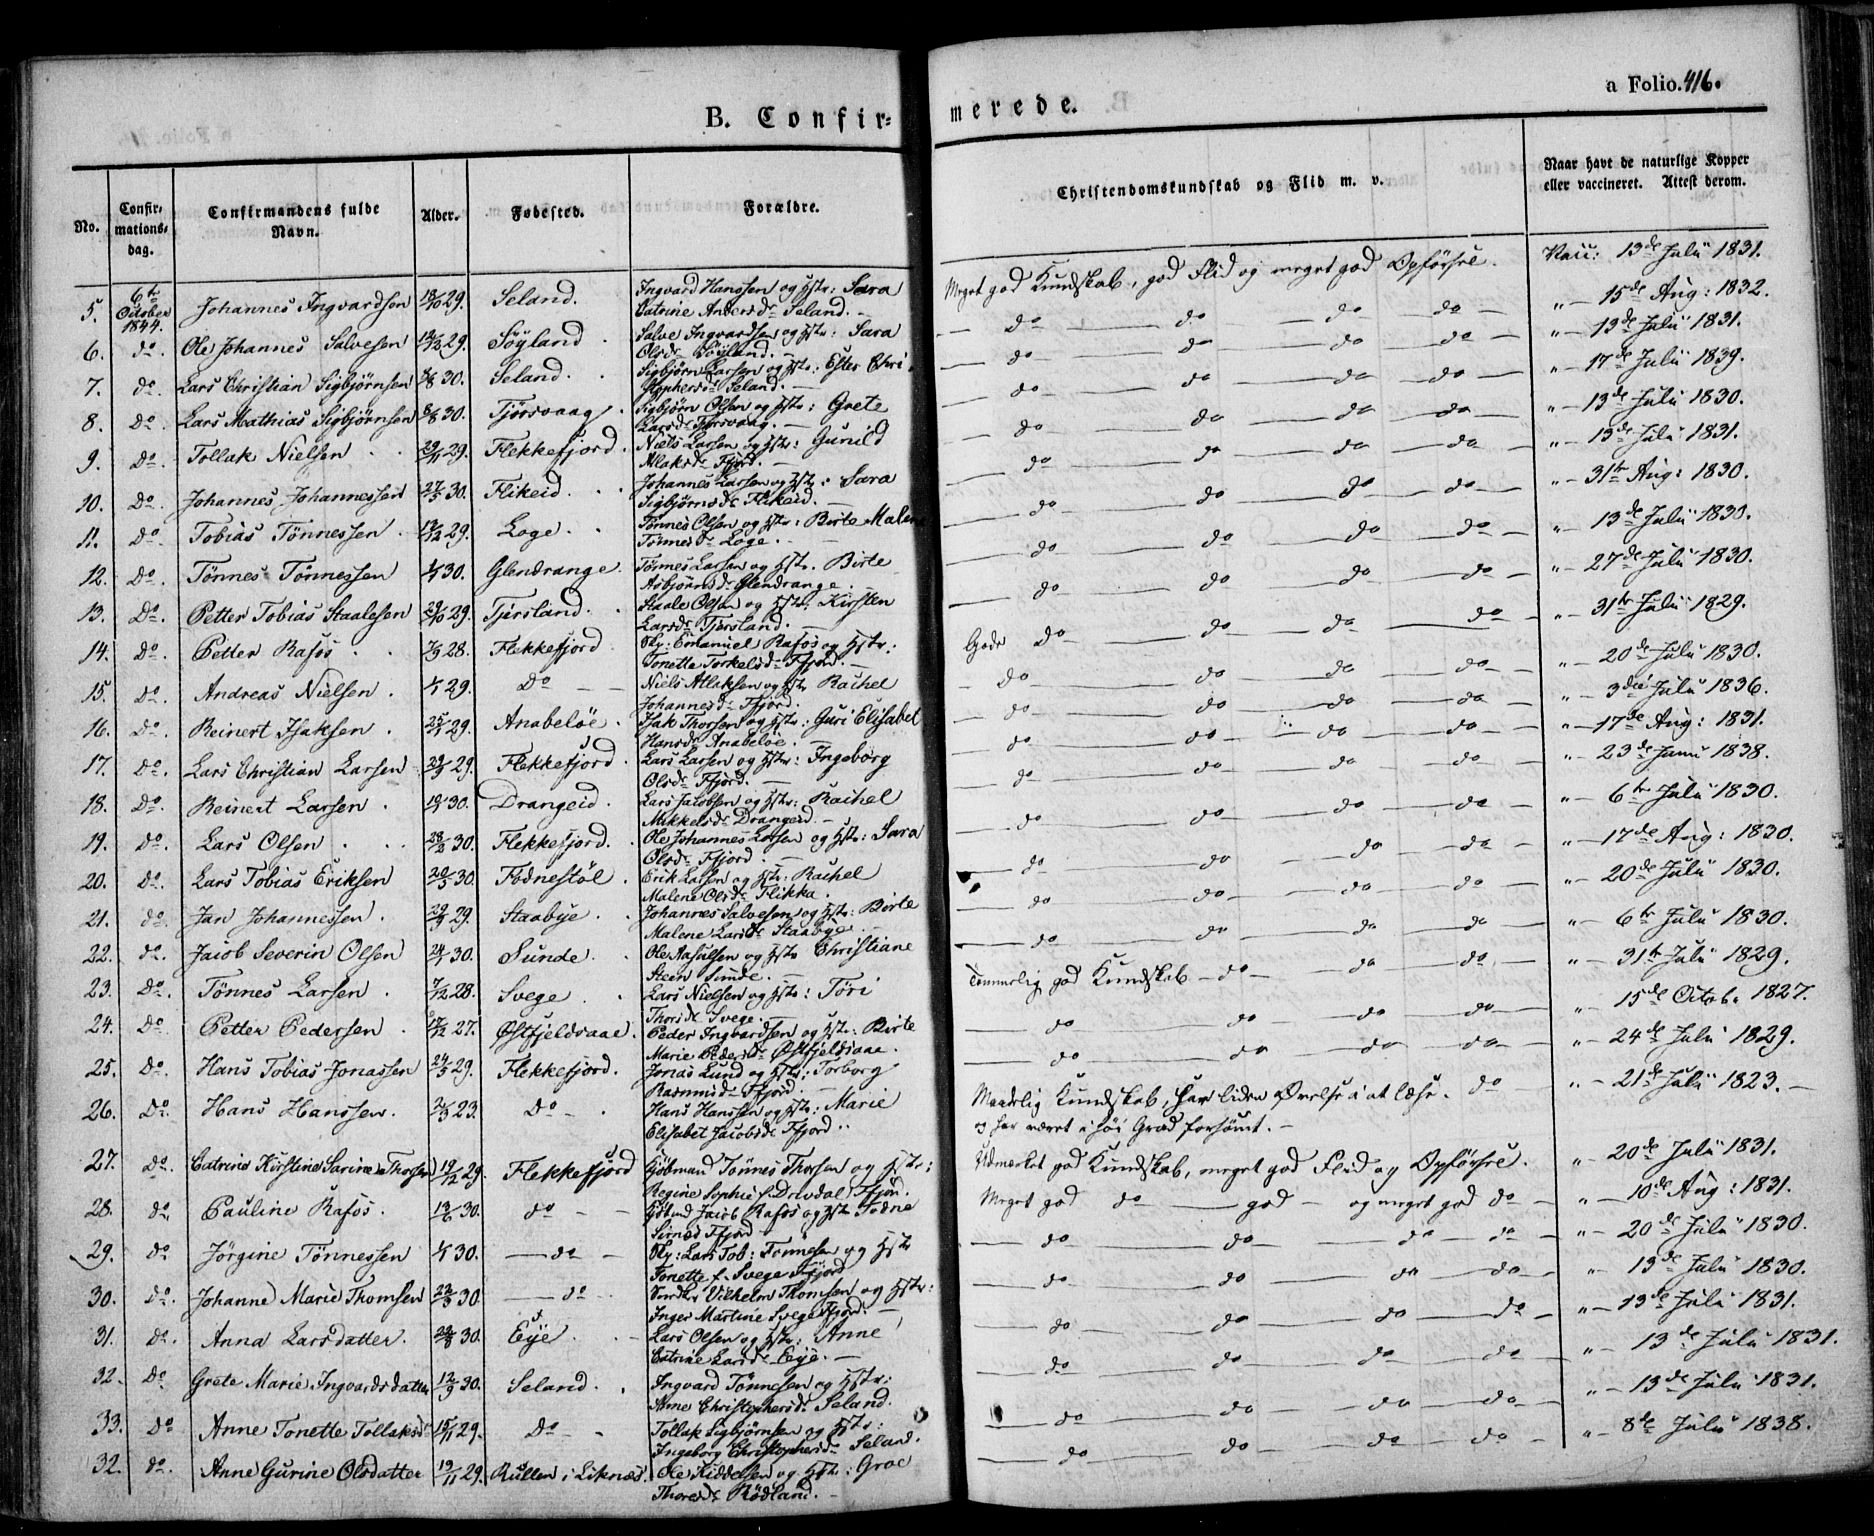 B. Confir=
merede.
a Folio. 416.
No.
Confir-
mations-
dag.
Confirmandens fulde
Navn.
Alder.
Fødested.
Forældre.
Christendomskundskab og Flid m. v.
Naar havt de naturlige Kopper
eller vaccineret. Attest derom.
5. 6te October 1844. Johannes Ingvardsen 29. Seland. Ingvard Hanssen og Hstr: Sara
Catrine Andersdr Seland. Meget god Kundskab, god Flid og meget god Opførsel. Vacc: 13de Juli 1831.
6. do. Ole Johannes Salvesen 29. Søyland. Salve Ingvardsen og Hstr: Sara
Olsdr Søyland. do do do do " 15de Aug: 1832.
7. do. Lars Christian Sigbjørnsen 30. Seland. Sigbjørn Larsen og Hstr: Ester Chri
stophersdr Seland. do do do do " 13de Juli 1831.
8. Do. Lars Mathias Sigbjørnsen 30. Tjørsvaag. Sigbjørn Olsen og Hstr: Grete
Larsdr Tjørsvaag. do do do do " 17de Juli 1839.
9. Do. Tollak Nielsen 29. Flekkefjord. Niels Larsen og Hstr: Gunild
Atlaksdr Ffjord. do do do do " 13de Juli 1830.
10. Do. Johannes Johannessen 27/5 30. Flikeid. Johannes Larsen og Hstr: Sara
Sigbjørnsdr Flikeid. do do do do " 13de Juli 1831.
11. Do. Tobias Tønnessen 29. Loge. Tønnes Olsen og Hstr: Birte Malene
Tønnesdr Loge. do do do do " 31te Aug: 1830.
12. Do. Tønnes Tønnessen 30. Glendrange. Tønnes Larsen og Hstr. Birte
Asbjørnsdr Glendrange. do do do do " 13de Juli 1830.
13. Do. Petter Tobias Staalesen 29/10 29. Tjersland. Staale Olsen og Hstr: Kirsten
Larsdr Tjersland. do do do do " 27de Juli 1830.
14. Do. Petter Rafos 28. Flekkefjord. Sky: Emanuel Rafos og Hstr:
Tonette Torkelsdr Ffjord. Gode do do do do " 31te Juli 1829.
15. Do. Andreas Nielsen. 29. Do Niels Atlaksen og Hstr Rachel
Johannesdr Ffjord. do do do do " 20de Juli 1830.
16. Do. Reinert Isaksen. 29. Anabeløe. Isak Thorsen og Hstr: Guri Elisabet
Hansdr Anabeløe. do do do do " 3die Juli 1836.
17. Do. Lars Christian Larsen 29. Flekkefjord. Lars Larsen og Hstr: Ingeborg
Olsdr Ffjord. do do do do " 17de Aug: 1831.
18. Do. Reinert Larsen. 30. Drangeid. Lars Jacobsen og Hstr: Rachel
Mikkelsdr Drangeid. do do do do " 23de Juni 1838.
19. Do. Lars Olsen 30. Flekkefjord. Ole Johannes Larsen og Hstr: Sara
Olsdr Ffjord. do do do do " 6te Juli 1830.
20. Do. Lars Tobias Eriksen 20/5 30. Fodnestøl. Erik Larsen og Hstr: Rachel
Malene Olsdr Flikka. do do do do " 17de Aug: 1830.
21. do. Jan Johannessen. 29. Staabye. Johannes Salvesen og Hstr: Birte
Malene Larsdr Staabye. do do do do " 20de Juli 1830.
22. do. Jacob Severin Olsen 30. Sunde. Ole Aasulsen og Hstr Christiane
Steen Sunde. do do do do " 6te Juli 1830.
23. Do. Tønnes Larsen 7/12 28. Svege. Lars Nielsen og Hstr: Tøri
Thorsdr Svege. Temmelig god Kundskab do do do " 31te Juli 1829.
24. Do. Petter Pedersen 17/12 27. Østfjeldsaae. Peder Ingvardsen og Hstr: Birte
Marie Pedersdr Østfjeldsaae. do do do do " 15de Octob. 1827.
25. Do. Hans Tobias Jonassen 24/5 29. Flekkefjord. Jonas Lund og Hstr: Torborg
Rasmusdr Ffjord do do do do " 24de Juli 1829.
26. Do. Hans Hanssen. 23. Do Hans Hanssen og Hstr: Marie
Elisabet Jacobsdr Ffjord. Maadelig Kundskab, har liden Øvelse i at læse. do
og har været i høi Grad forsømt. " 21de Juli 1823.
27. Do. Catrine Kirstine Sarine Thorsen 19/12 29. Flekkefjord Kjøbmand Tønnes Thorsen og Hstr:
Regine Sophie f. Drivdal, Ffjord. Udmærket god Kundskab, meget god Flid og Opførsel. " 20de Juli 1831.
28. do. Pauline Rafos. 13/6 30. do Kjøbmd Jacob Rafos og Hstr Todne
Sirnæs Ffjord Meget god do god og meget god do " 10de Aug: 1831.
29. do Jørgine Tønnessen 30. do Sky: Lars Tob: Tønnesen og Hstr
Tonette f. Svege Ffjord do do do do " 20de Juli 1830.
30. do. Johanne Marie Thomsen 30. do Vilhelm Thomsen og Hstr:
Inger Martine Svege Ffjord. do do do do " 13de Juli 1830.
31. do. Anna Larsdatter. 30. Eye. Lars Olsen og Hstr: Anne
Catrine Larsdr Eye. do do do do " 13de Juli 1831.
32. Do Grete Marie Ingvardsdatter 12/9 30. Seland. Ingvard Tønnesen og Hstr:
Anne Christophersdr Seland. do do do do " 13de Juli 1831.
33. Do Anne Tonette Tollaksdr 15/11 29. Do Tollak Sigbjørnsen og Hstr:
Ingeborg Christophersdr Seland. do do do do " 13de Juli 1831.
32. do. Anne Gurine Olsdatter 19/11 29. Rullen i Liknæs. Ole Kiddelsen og Hstr: Groe
Thoresdr Rødland. do do do do " 8de Juli 1838.